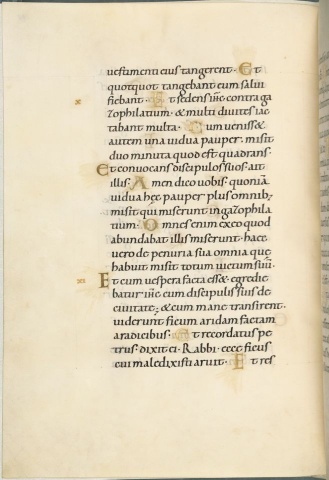 uestimenti eius tangerent · Et
quotquot tangebant eum salui
fiebant · Et sedens ihc contra ga
zophilatium · & multi diuites iac
tabant multa · Cum uenisset
autem una uidua pauper · misit
duo minuta quod est quadrans ·
Et conuocans discipulos suos · ait
illis · Amen dico uobis · quoniā
uidua hęc pauper plus omnib;
misit qui miserunt in gazophila
tium · Omnes enim ex eo quod
abundabat illis miserunt · haec
uero de penuria sua omnia que
habuit misit totum uictum suū ·
Et cum uespera facta ess& egredie
batur ihc cum discipulis suis de
ciuitate; & cum mane transirent
uiderunt ficum aridam factam
a radicibus · Et recordatus pe
trus · dixit ei · Rabbi · ecce ficus
cui maledixisti aruit · Et res